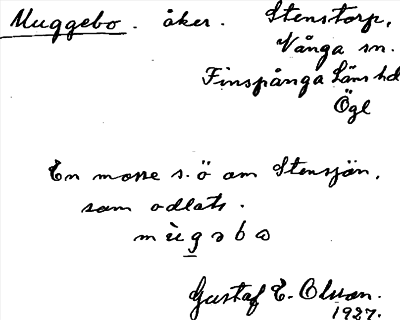 Muggebo. åker. Stenstorp,
Vånga sn.
Finspånga läns hd
Ögl
En mosse s.ö om Stensjön,
som odlats.
mùgəbω
Gustaf E. Olsson.
1927.